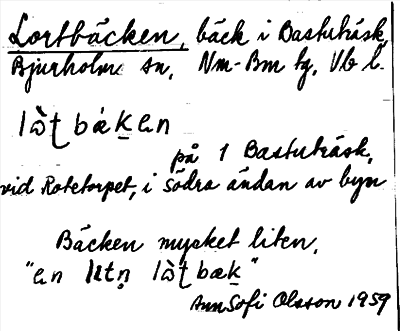 Lortbäcken, bäck i Bastuträsk,
Bjurholm sn, Nm-Bm tg, Vb l.
bækɐn
på 1 Bastuträsk,
vid Rotetorpet, i södra ändan av byn
Bäcken mycket liten.
Ann Sofi Olsson 1959